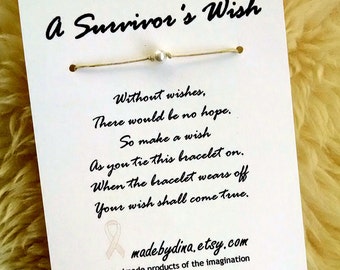 A Survivor's Wish
Without wishes,
There would be no hope.
So make a wish
As you tie this bracelet on.
When the bracelet wears off
Your wish shall come true.
madebydina.etsy.com
made products of the imagination